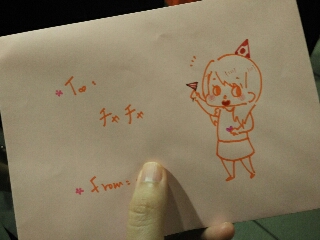 To:
チャチャ
From: